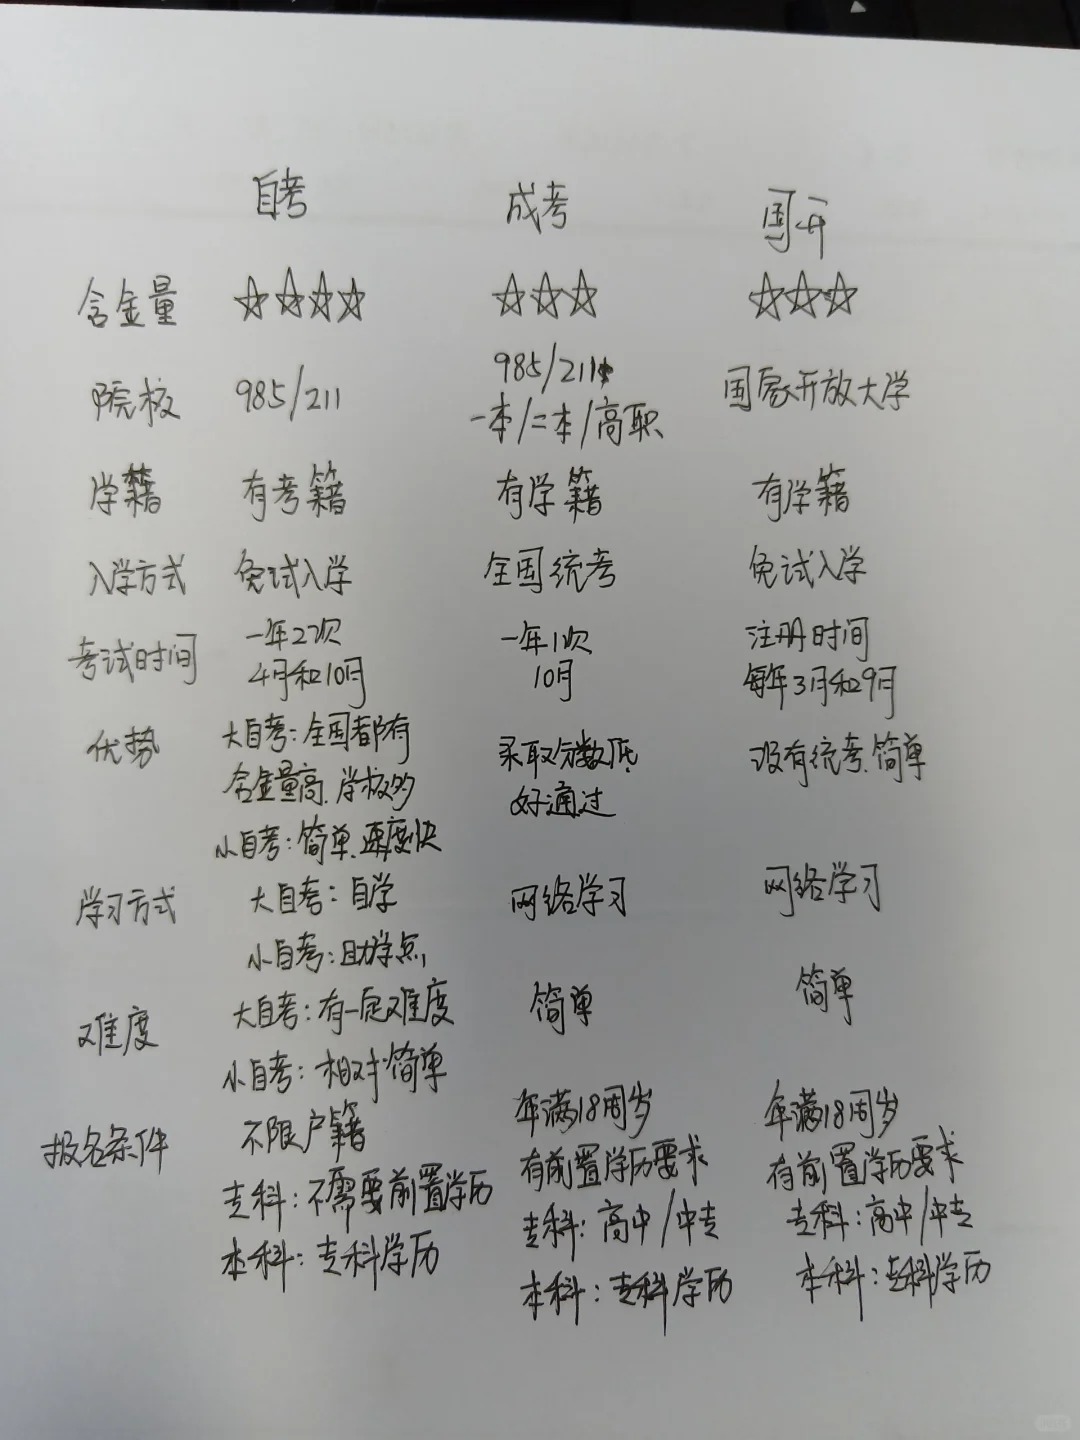 自考 成考 国开
含金量 ☆☆☆☆ ☆☆☆ ☆☆☆
院校 985/211 985/211 国家开放大学
一本/二本/高职
学籍 有考籍 有学籍 有学籍
入学方式 免试入学 全国统考 免试入学
考试时间 一年2次 一年1次 注册时间
4月和10月 10月 每年3月和9月
优势 大自考:全国都有 录取分数低 没有统考、简单
含金量高、学校多 好通过
小自考:简单、速度快
学习方式 大自考:自学 网络学习 网络学习
小自考:助学点
难度 大自考:有一定难度 简单 简单
小自考:相对简单
报名条件 不限户籍 年满18周岁 年满18周岁
有前置学历要求 有前置学历要求
专科:不需要前置学历 专科:高中/中专 专科:高中/中专
本科:专科学历 本科:专科学历 本科:专科学历